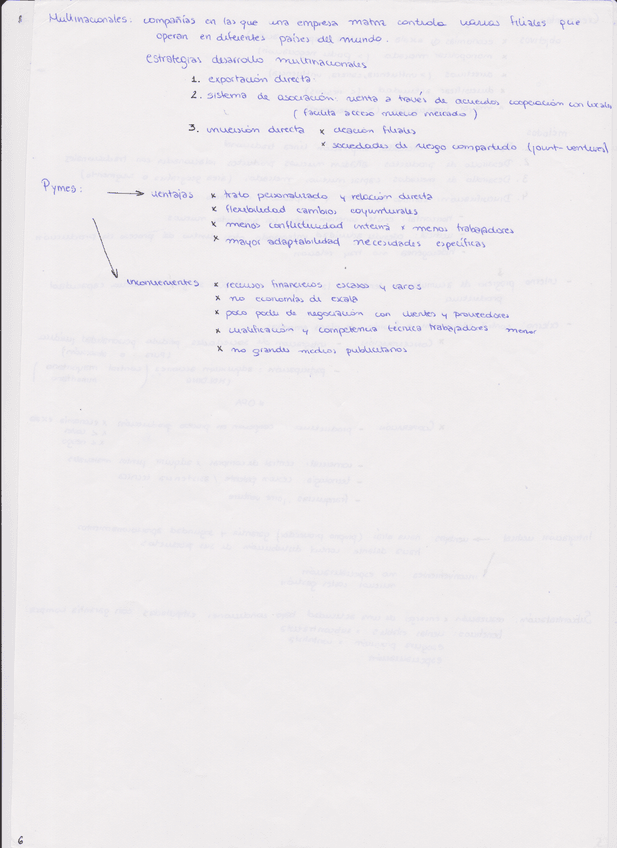 8 Multinacionales: compañías en las que una empresa matriz controla varias filiales que
operan en diferentes países del mundo.
estrategias desarrollo multinacionales
1. exportación directa
2. sistema de asociación: venta a través de acuerdos cooperación con locales
( facilita acceso nuevo mercado )
3. inversión directa x creación filiales
x sociedades de riesgo compartido (joint-ventures)
Pymes: → ventajas x trato personalizado y relación directa
x flexibilidad cambios coyunturales
x menos conflictividad interna x menos trabajadores
x mayor adaptabilidad necesidades específicas
inconvenientes x recursos financieros escasos y caros
x no economías de escala
x poco poder de negociación con clientes y proveedores
x cualificación y competencia técnica trabajadores menor
x no grandes medios publicitarios
6